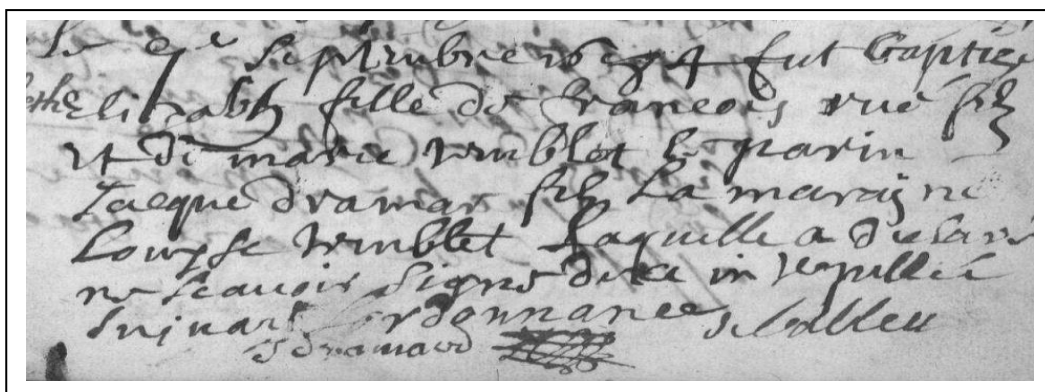 Le 9e Septembre 1674 fut baptizé
Elizabh fille de francois rué fils
et de marie tremblet le parin
Jacque dramar fils La maraine
Louyse tremblet Laquelle a declaré
ne scauoir signé de ce interpellée
suiuant ordonnance
J dramard